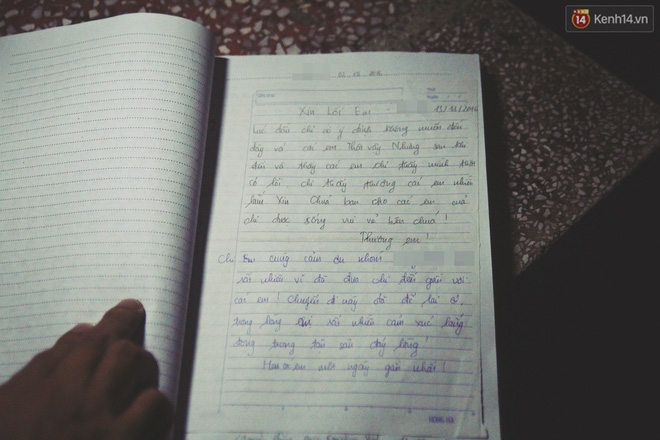 14 Kenh14.vn
Xin Lỗi Em 13/11/2016
Lúc đầu chị có ý định không muốn đến
đây với các em Thật vậy Nhưng sau khi
đến và thấy các em chị thấy mình thật
có lỗi chị thấy thương các em nhiều
lắm Xin Chúa ban cho các em của
chị được sống vui vẻ bên chúa!
Thương em!
Chị cũng cảm ơn nhóm
rất nhiều vì đã đưa chị đến gần với
các em! Chuyến đi này đã để lại
trong lòng rất nhiều cảm xúc lắng
đọng trong tận sâu đáy lòng!
Hẹn các em một ngày gần nhất!
HONG HA